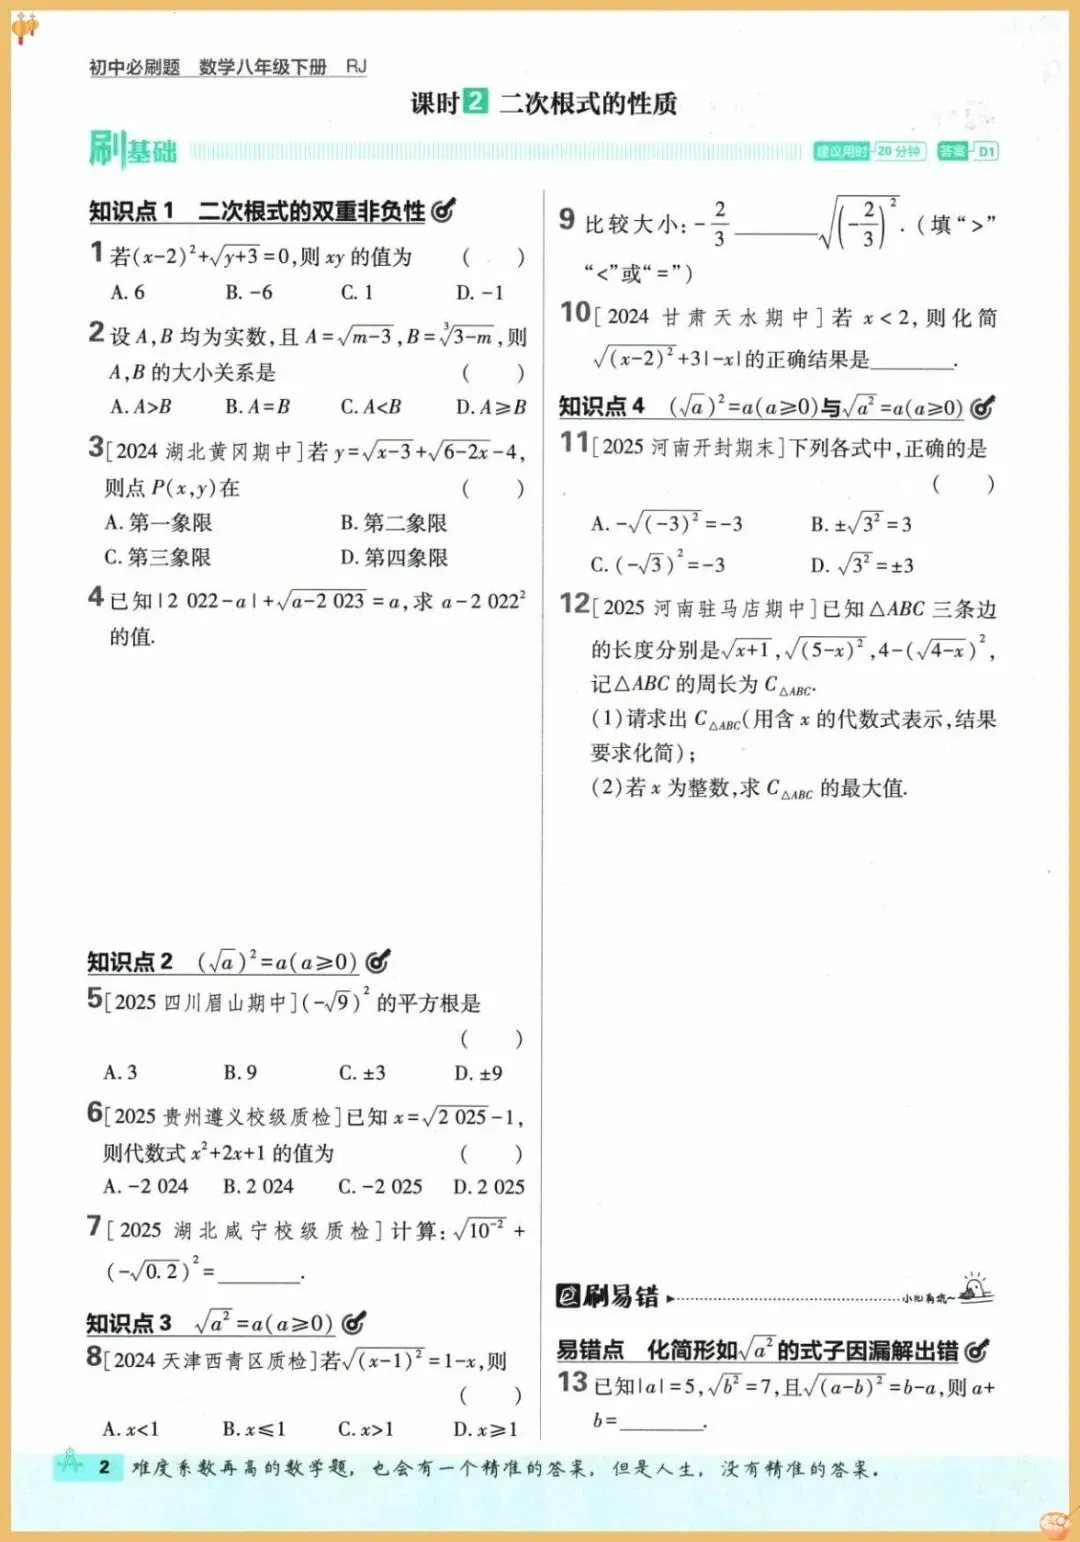 初中必刷题 数学八年级下册 RJ
课时2 二次根式的性质
刷基础
建议用时 20分钟 答案 D1
知识点1 二次根式的双重非负性
1 若(x-2)²+√(y+3)=0,则 xy 的值为 ( )
A. 6 B. -6 C. 1 D. -1
2 设 A,B 均为实数,且 A=√(m-3),B=∛(3-m),则
A,B 的大小关系是 ( )
A. A>B B. A=B C. A<B D. A≥B
3 [2024 湖北黄冈期中]若 y=√(x-3)+√(6-2x)-4,
则点 P(x,y)在 ( )
A. 第一象限 B. 第二象限
C. 第三象限 D. 第四象限
4 已知|2 022-a|+√(a-2 023)=a,求 a-2 022²
的值.
知识点2 (√a)²=a(a≥0)
5 [2025 四川眉山期中](-√9)² 的平方根是
( )
A. 3 B. 9 C. ±3 D. ±9
6 [2025 贵州遵义校级质检]已知 x=√(2 025)-1,
则代数式 x²+2x+1 的值为 ( )
A. -2 024 B. 2 024 C. -2 025 D. 2 025
7 [2025 湖北咸宁校级质检]计算:√(10⁻²)+
(-√0.2)²=______.
知识点3 √(a²)=a(a≥0)
8 [2024 天津西青区质检]若√((x-1)²)=1-x,则
( )
A. x<1 B. x≤1 C. x>1 D. x≥1
9 比较大小:-2/3______√((-2/3)²).(填“>”
“<”或“=”)
10 [2024 甘肃天水期中]若 x<2,则化简
√((x-2)²)+3|-x|的正确结果是______.
知识点4 (√a)²=a(a≥0)与√(a²)=a(a≥0)
11 [2025 河南开封期末]下列各式中,正确的是
( )
A. -√((-3)²)=-3 B. ±√(3²)=3
C. (-√3)²=-3 D. √(3²)=±3
12 [2025 河南驻马店期中]已知△ABC 三条边
的长度分别是√(x+1),√((5-x)²),4-(√(4-x))²,
记△ABC 的周长为 C△ABC.
(1)请求出 C△ABC(用含 x 的代数式表示,结果
要求化简);
(2)若 x 为整数,求 C△ABC 的最大值.
刷易错 小心有坑~
易错点 化简形如√(a²)的式子因漏解出错
13 已知|a|=5,√(b²)=7,且√((a-b)²)=b-a,则 a+
b=______.
2 难度系数再高的数学题,也会有一个精准的答案,但是人生,没有精准的答案.